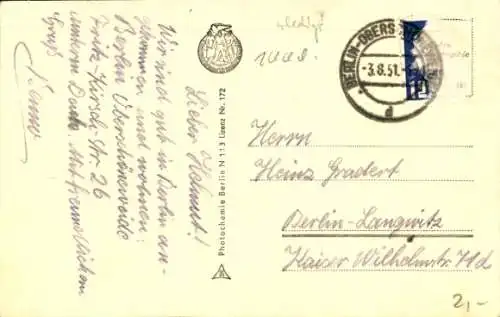 Lieber Helmut!
Wir sind gut in Berlin an-
gekommen und wohnen:
Berlin Oberschöneweide
Fritz Kirsch Str. 26
Mit freundlichem
Gruß
Photochemie Berlin N 113 Lizenz Nr. 172
BERLIN-OBERS
-3.8.51.-
d
Herrn
Heinz Gradert
Berlin-Langwitz
Kaiser Wilhelmstr.
2,-